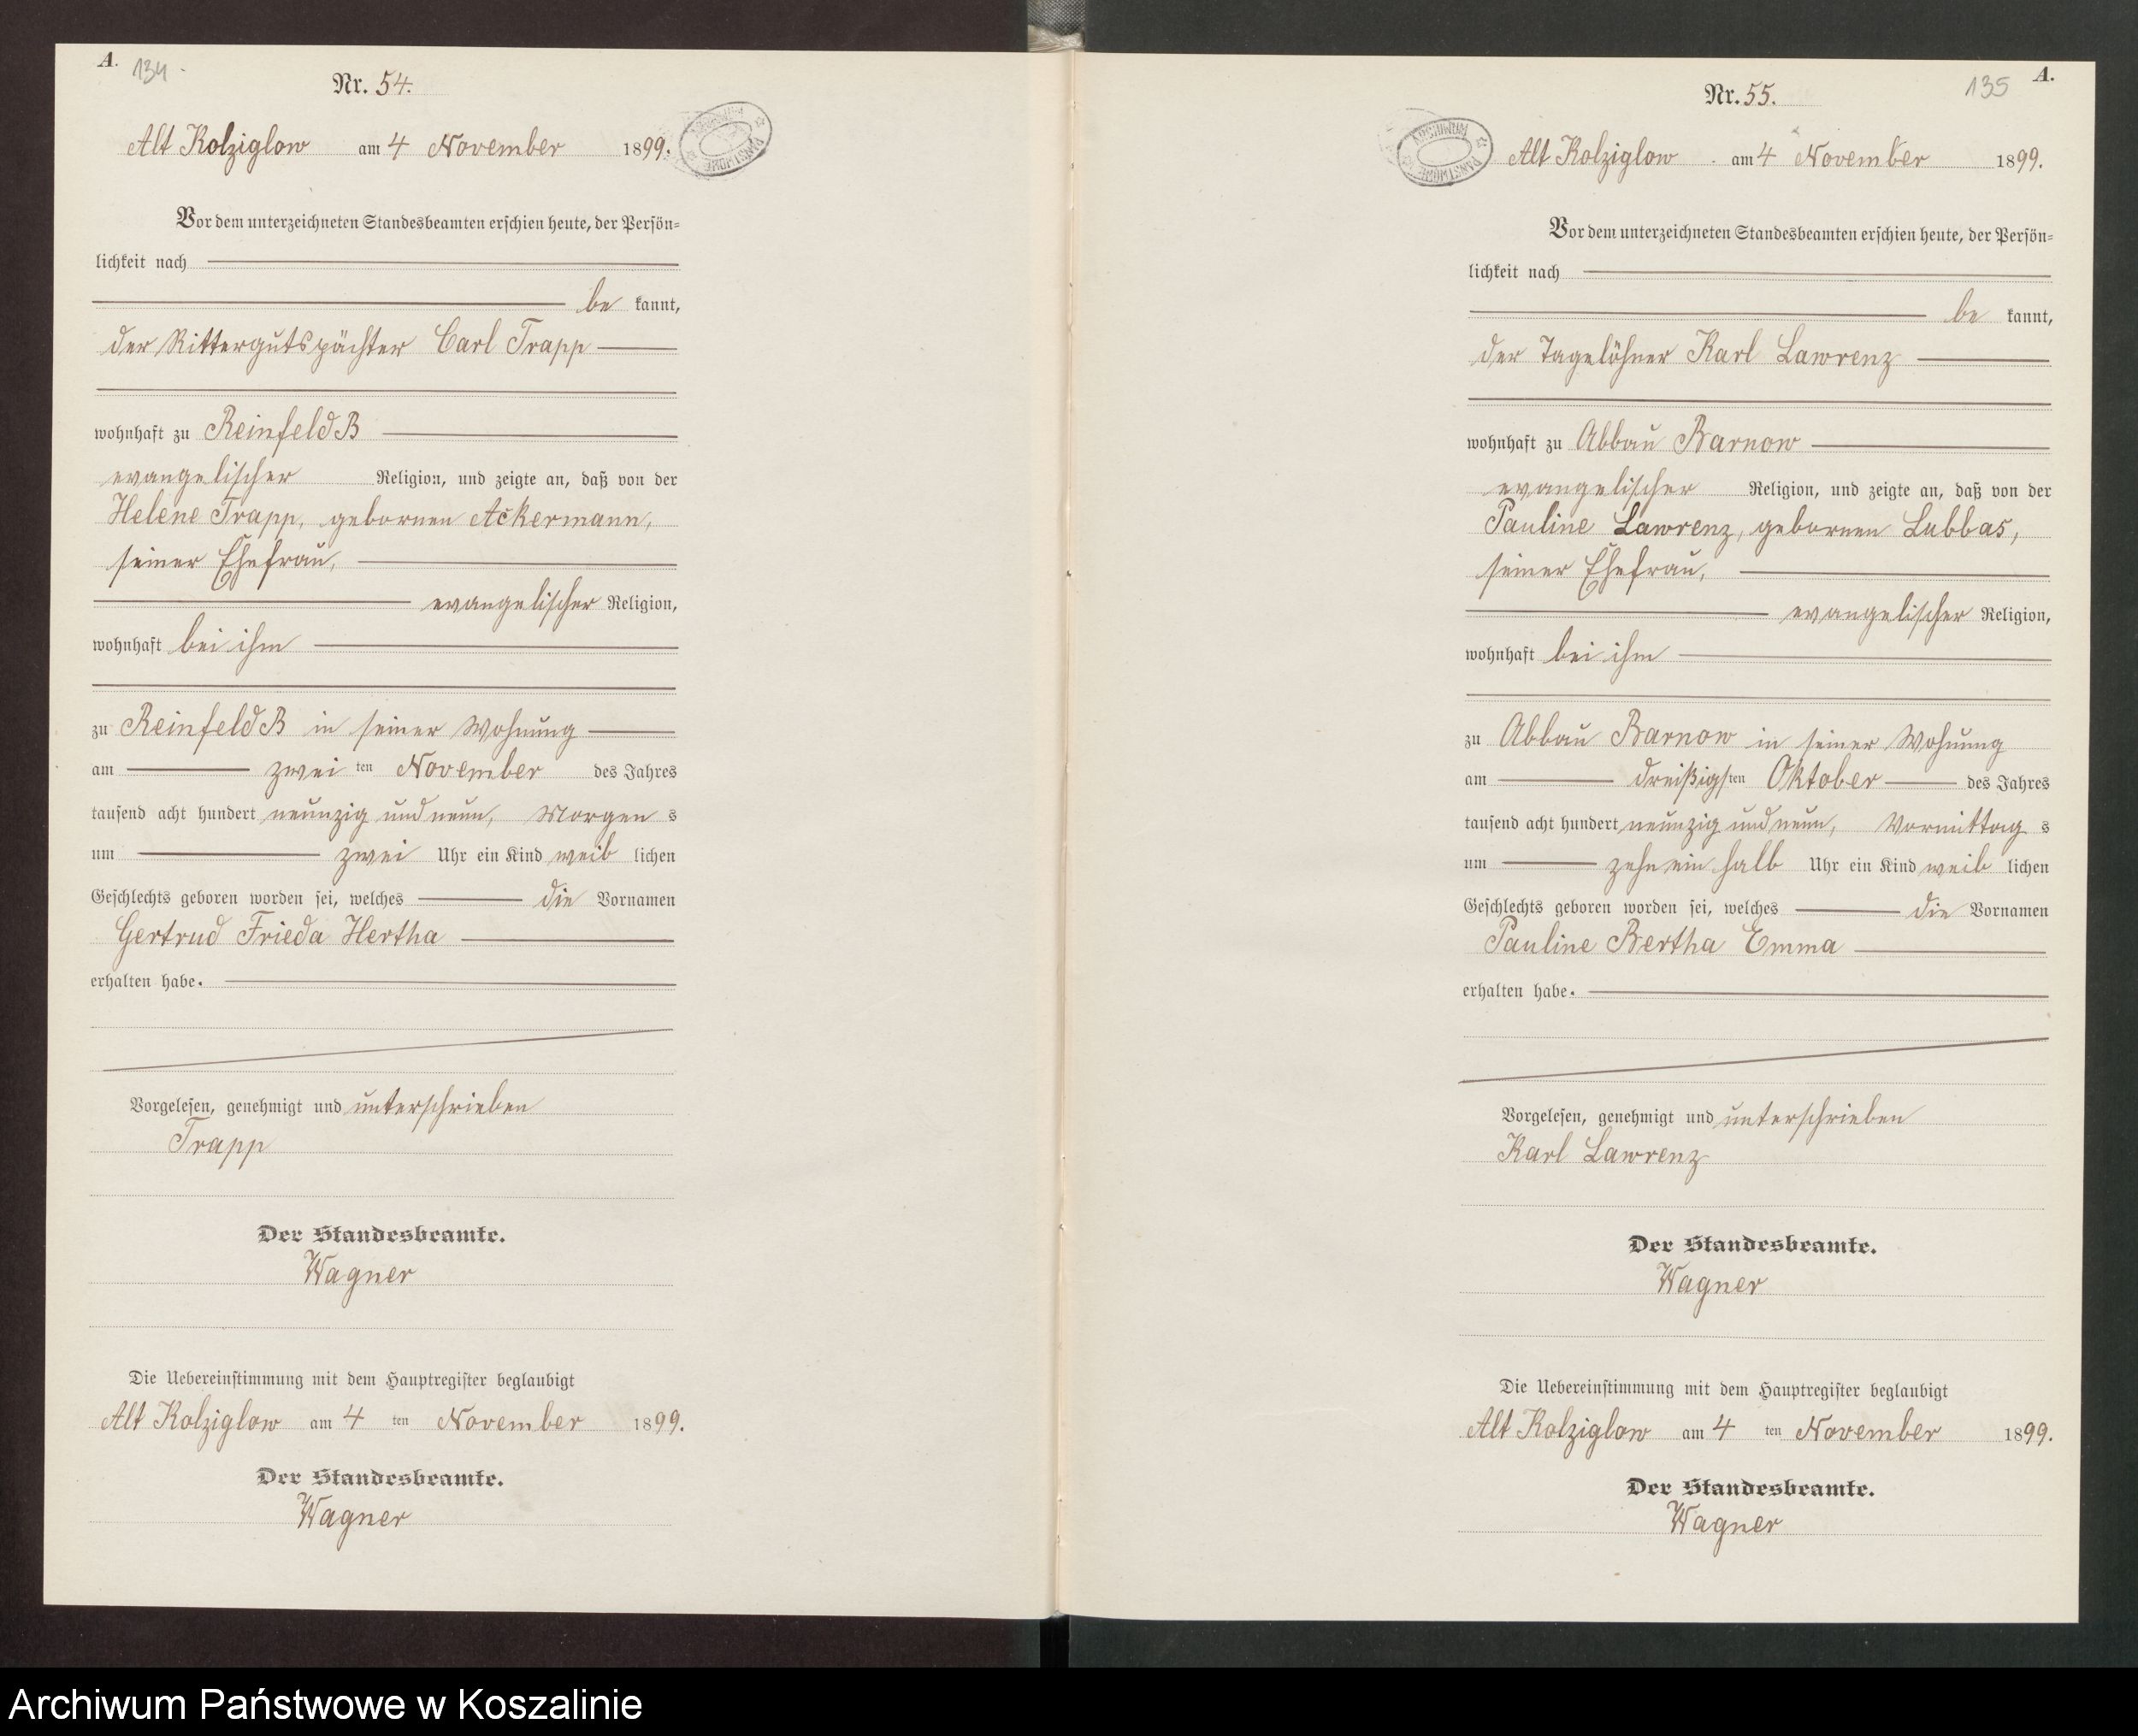 A.
134.
Nr. 54.
Alt Kolziglow am 4 November 1899.
ARCHIWUM PAŃSTWOWE
Vor dem unterzeichneten Standesbeamten erschien heute, der Persön-
lichkeit nach
be kannt,
der Rittergutspächter Carl Trapp
wohnhaft zu Reinfeld B
evangelischer Religion, und zeigte an, daß von der
Helene Trapp, gebornen Ackermann,
seiner Ehefrau,
evangelischer Religion,
wohnhaft bei ihm
zu Reinfeld B in seiner Wohnung
am zwei ten November des Jahres
tausend acht hundert neunzig und neun, Morgen s
um zwei Uhr ein Kind weib lichen
Geschlechts geboren worden sei, welches die Vornamen
Gertrud Frieda Hertha
erhalten habe.
Vorgelesen, genehmigt und unterschrieben
Trapp
Der Standesbeamte.
Wagner
Die Uebereinstimmung mit dem Hauptregister beglaubigt
Alt Kolziglow am 4 ten November 1899.
Der Standesbeamte.
Wagner
A.
135
Nr. 55.
ARCHIWUM PAŃSTWOWE
Alt Kolziglow am 4 November 1899.
Vor dem unterzeichneten Standesbeamten erschien heute, der Persön-
lichkeit nach
be kannt,
der Tagelöhner Karl Lawrenz
wohnhaft zu Abbau Barnow
evangelischer Religion, und zeigte an, daß von der
Pauline Lawrenz, gebornen Labbas,
seiner Ehefrau,
evangelischer Religion,
wohnhaft bei ihm
zu Abbau Barnow in seiner Wohnung
am dreißigs ten Oktober des Jahres
tausend acht hundert neunzig und neun, Vormittag s
um zehn ein halb Uhr ein Kind weib lichen
Geschlechts geboren worden sei, welches die Vornamen
Pauline Bertha Emma
erhalten habe.
Vorgelesen, genehmigt und unterschrieben
Karl Lawrenz
Der Standesbeamte.
Wagner
Die Uebereinstimmung mit dem Hauptregister beglaubigt
Alt Kolziglow am 4 ten November 1899.
Der Standesbeamte.
Wagner
Archiwum Państwowe w Koszalinie